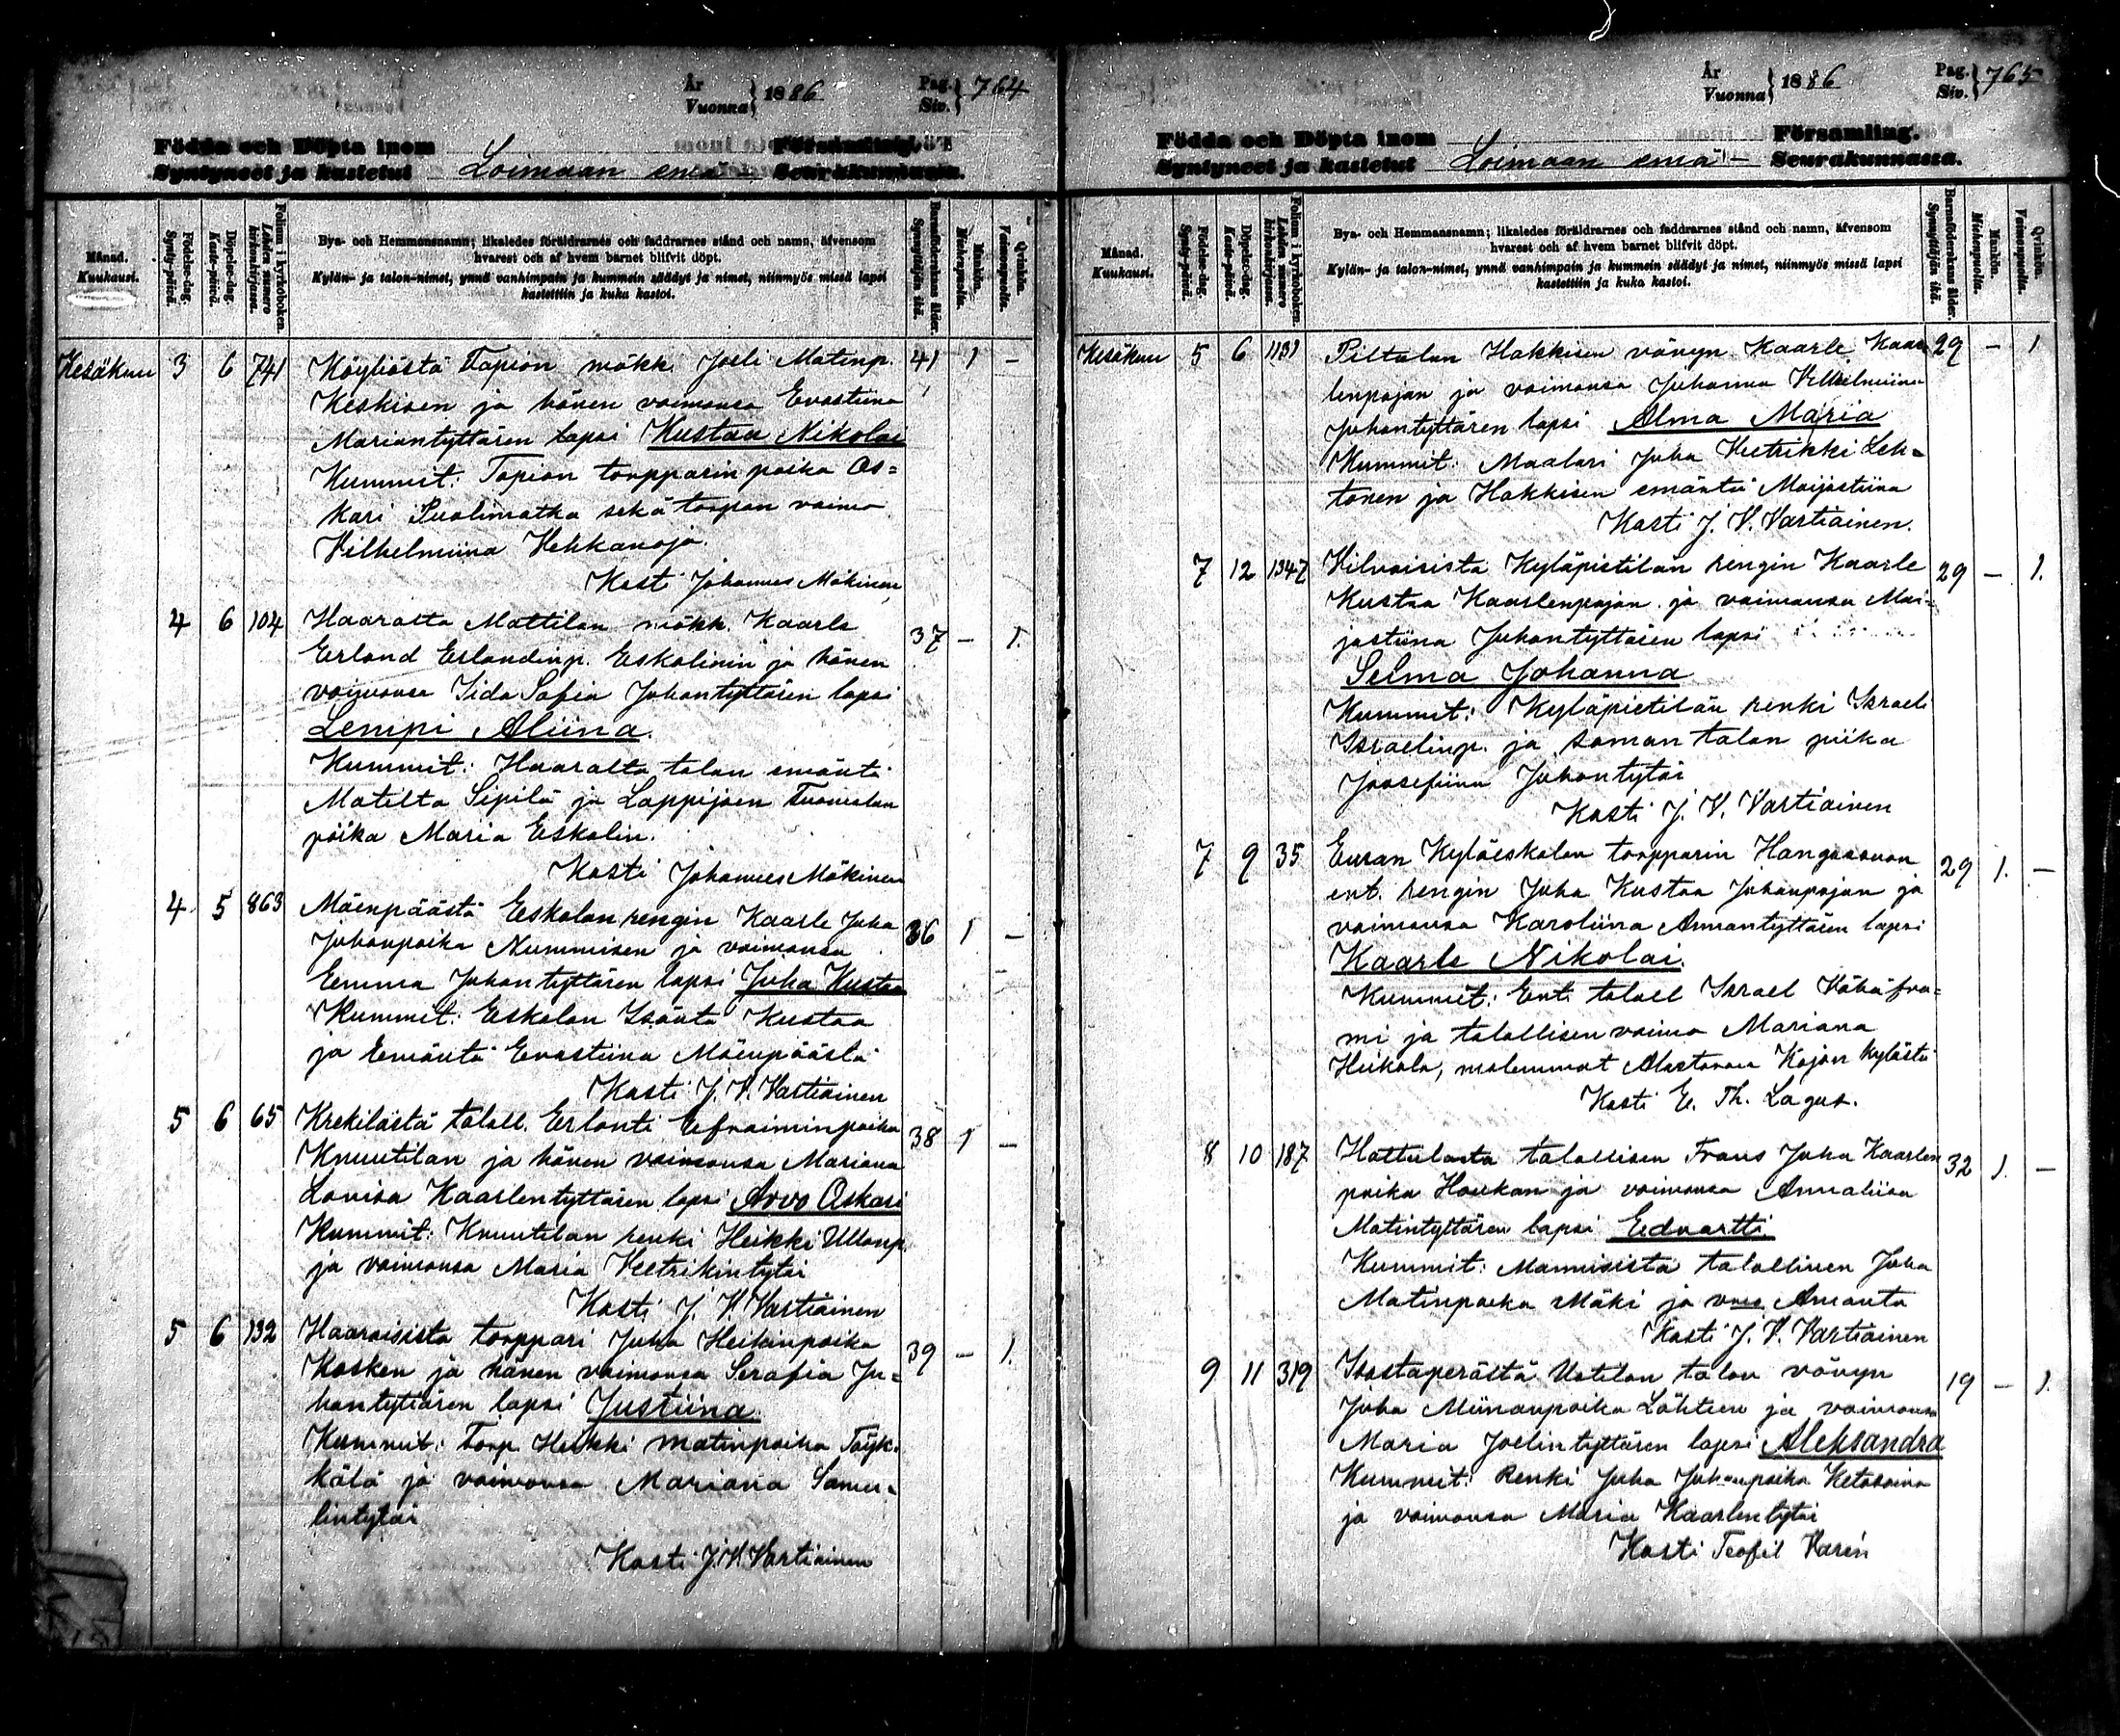 År
Vuonna} 1886
Pag.
Siv.} 764
Födda och Döpta inom
Syntyneet ja kastetut Loimaan emä- Församling.
Seurakunnassa.
Månad.
Kuukausi.
Födelse-dag.
Synty-päivä.
Döpelse-dag.
Kaste-päivä.
Folium i kyrkoboken.
Lehden numero kirkonkirjassa.
Bya- och Hemmansnamn; likaledes föräldrarnes och faddrarnes stånd och namn, äfvensom
hvarest och af hvem barnet blifvit döpt.
Kylän- ja talon-nimet, ynnä vanhimpain ja kummein säädyt ja nimet, niinmyös missä lapsi
kastettiin ja kuka kastoi.
Barnföderskans ålder.
Synnyttäjän ikä.
Mankön.
Miehenpuolta.
Qvinkön.
Vaimonpuolta.
Kesäkuu 3 6 741 Köyliöstä Tapion mökk. Joeli Matinp. 41 1 –
Keskisen ja hänen vaimonsa Evastiina
Mariantyttären lapsi Kustaa Nikolai
Kummit: Tapion torpparin poika Os=
kari Suolimatka sekä torpan vaimo
Vilhelmiina Vehkanoja.
Kasti Johannes Mäkinen
4 6 104 Haaralta Mattilan mökk. Kaarle 37 – 1.
Erland Erlandinp. Eskolinin ja hänen
vaimonsa Iida Sofia Johantyttären lapsi
Lempi Aliina.
Kummit: Haaralta talon emäntä
Matilta Sipilä ja Lappijoen Tuomolan
piika Maria Eskolin.
Kasti Johannes Mäkinen
4 5 863 Mäenpäästä Eskolan rengin Kaarle Juha 36 1 –
Juhonpoika Nummisen ja vaimonsa
Eemma Juhontyttären lapsi Juha Kustaa
Kummit: Eskolan Isäntä Kustaa
ja Emäntä Evastiina Mäenpäästä
Kasti J. V. Vartiainen
5 6 65 Krekilästä taloll. Erlanti Efraiminpoika 38 1 –
Knuutilan ja hänen vaimonsa Mariana
Lovisa Kaarlentyttären lapsi Arvo Oskari
Kummit: Knuutilan renki Heikki Ullanp.
ja vaimonsa Maria Veetrikintytär
Kasti J. V. Vartiainen
5 6 132 Haaroisista torppari Juha Heikinpoika 39 – 1.
Kosken ja hänen vaimonsa Serafia Ju=
hontyttären lapsi Justiina.
Kummit: Torp. Heikki Matinpoika Töyk-
kälä ja vaimonsa Mariana Samu-
lintytär
Kasti J. V. Vartiainen
År
Vuonna} 1886
Pag.
Siv.} 765
Födda och Döpta inom
Syntyneet ja kastetut Loimaan emä- Församling.
Seurakunnassa.
Månad.
Kuukausi.
Födelse-dag.
Synty-päivä.
Döpelse-dag.
Kaste-päivä.
Folium i kyrkoboken.
Lehden numero kirkonkirjassa.
Bya- och Hemmansnamn; likaledes föräldrarnes och faddrarnes stånd och namn, äfvensom
hvarest och af hvem barnet blifvit döpt.
Kylän- ja talon-nimet, ynnä vanhimpain ja kummein säädyt ja nimet, niinmyös missä lapsi
kastettiin ja kuka kastoi.
Barnföderskans ålder.
Synnyttäjän ikä.
Mankön.
Miehenpuolta.
Qvinkön.
Vaimonpuolta.
Kesäkuu 5 6 1131 Piltolan Hakkisen vävyn Kaarle Kaar 29 – 1
lenpojan ja vaimonsa Johanna Vilhelmiina
Juhontyttären lapsi Alma Maria
Kummit: Maalari Juha Veetrikki Leh=
tonen ja Hakkisen emäntä Maijastiina
Kasti J. V. Vartiainen.
7 12 1347 Vilvaisista Kyläpietilän rengin Kaarle 29 – 1.
Kustaa Kaarlenpojan ja vaimonsa Mai=
jastiina Juhontyttären lapsi
Selma Johanna
Kummit: Kyläpietilän renki Israeli
Israelinp. ja saman talon piika
Joosefiina Juhontytär
Kasti J. V. Vartiainen
7 9 35 Euran Kyläeskolan torpparin Hangassuon 29 1. –
ent. rengin Juha Kustaa Juhanpojan ja
vaimonsa Karoliina Annantyttären lapsi
Kaarle Nikolai.
Kummit: Ent. taloll Israel Vähä-fra=
mi ja talollisen vaimo Mariana
Heikola, molemmat Alastaron Kojon kylästä
Kasti E. Th. Lagus.
8 10 187 Hattulasta talollisen Frans Juha Kaarlen 32 1. –
poika Haukan ja vaimonsa Annaliisa
Matintyttären lapsi Eedvartti
Kummit: Mannisista talollinen Juha
Matinpoika Mäki ja vmo Amanta
Kasti J. V. Vartiainen
9 11 319 Isostaperästä Uotilan talon vävyn 19 – 1.
Juha Miinanpoika Lähteen ja vaimonsa
Maria Joelintyttären lapsi Aleksandra
Kummit: Renki Juha Juhanpoika Ketolainen
ja vaimonsa Maria Kaarlentytär
Kasti Teofil Varén